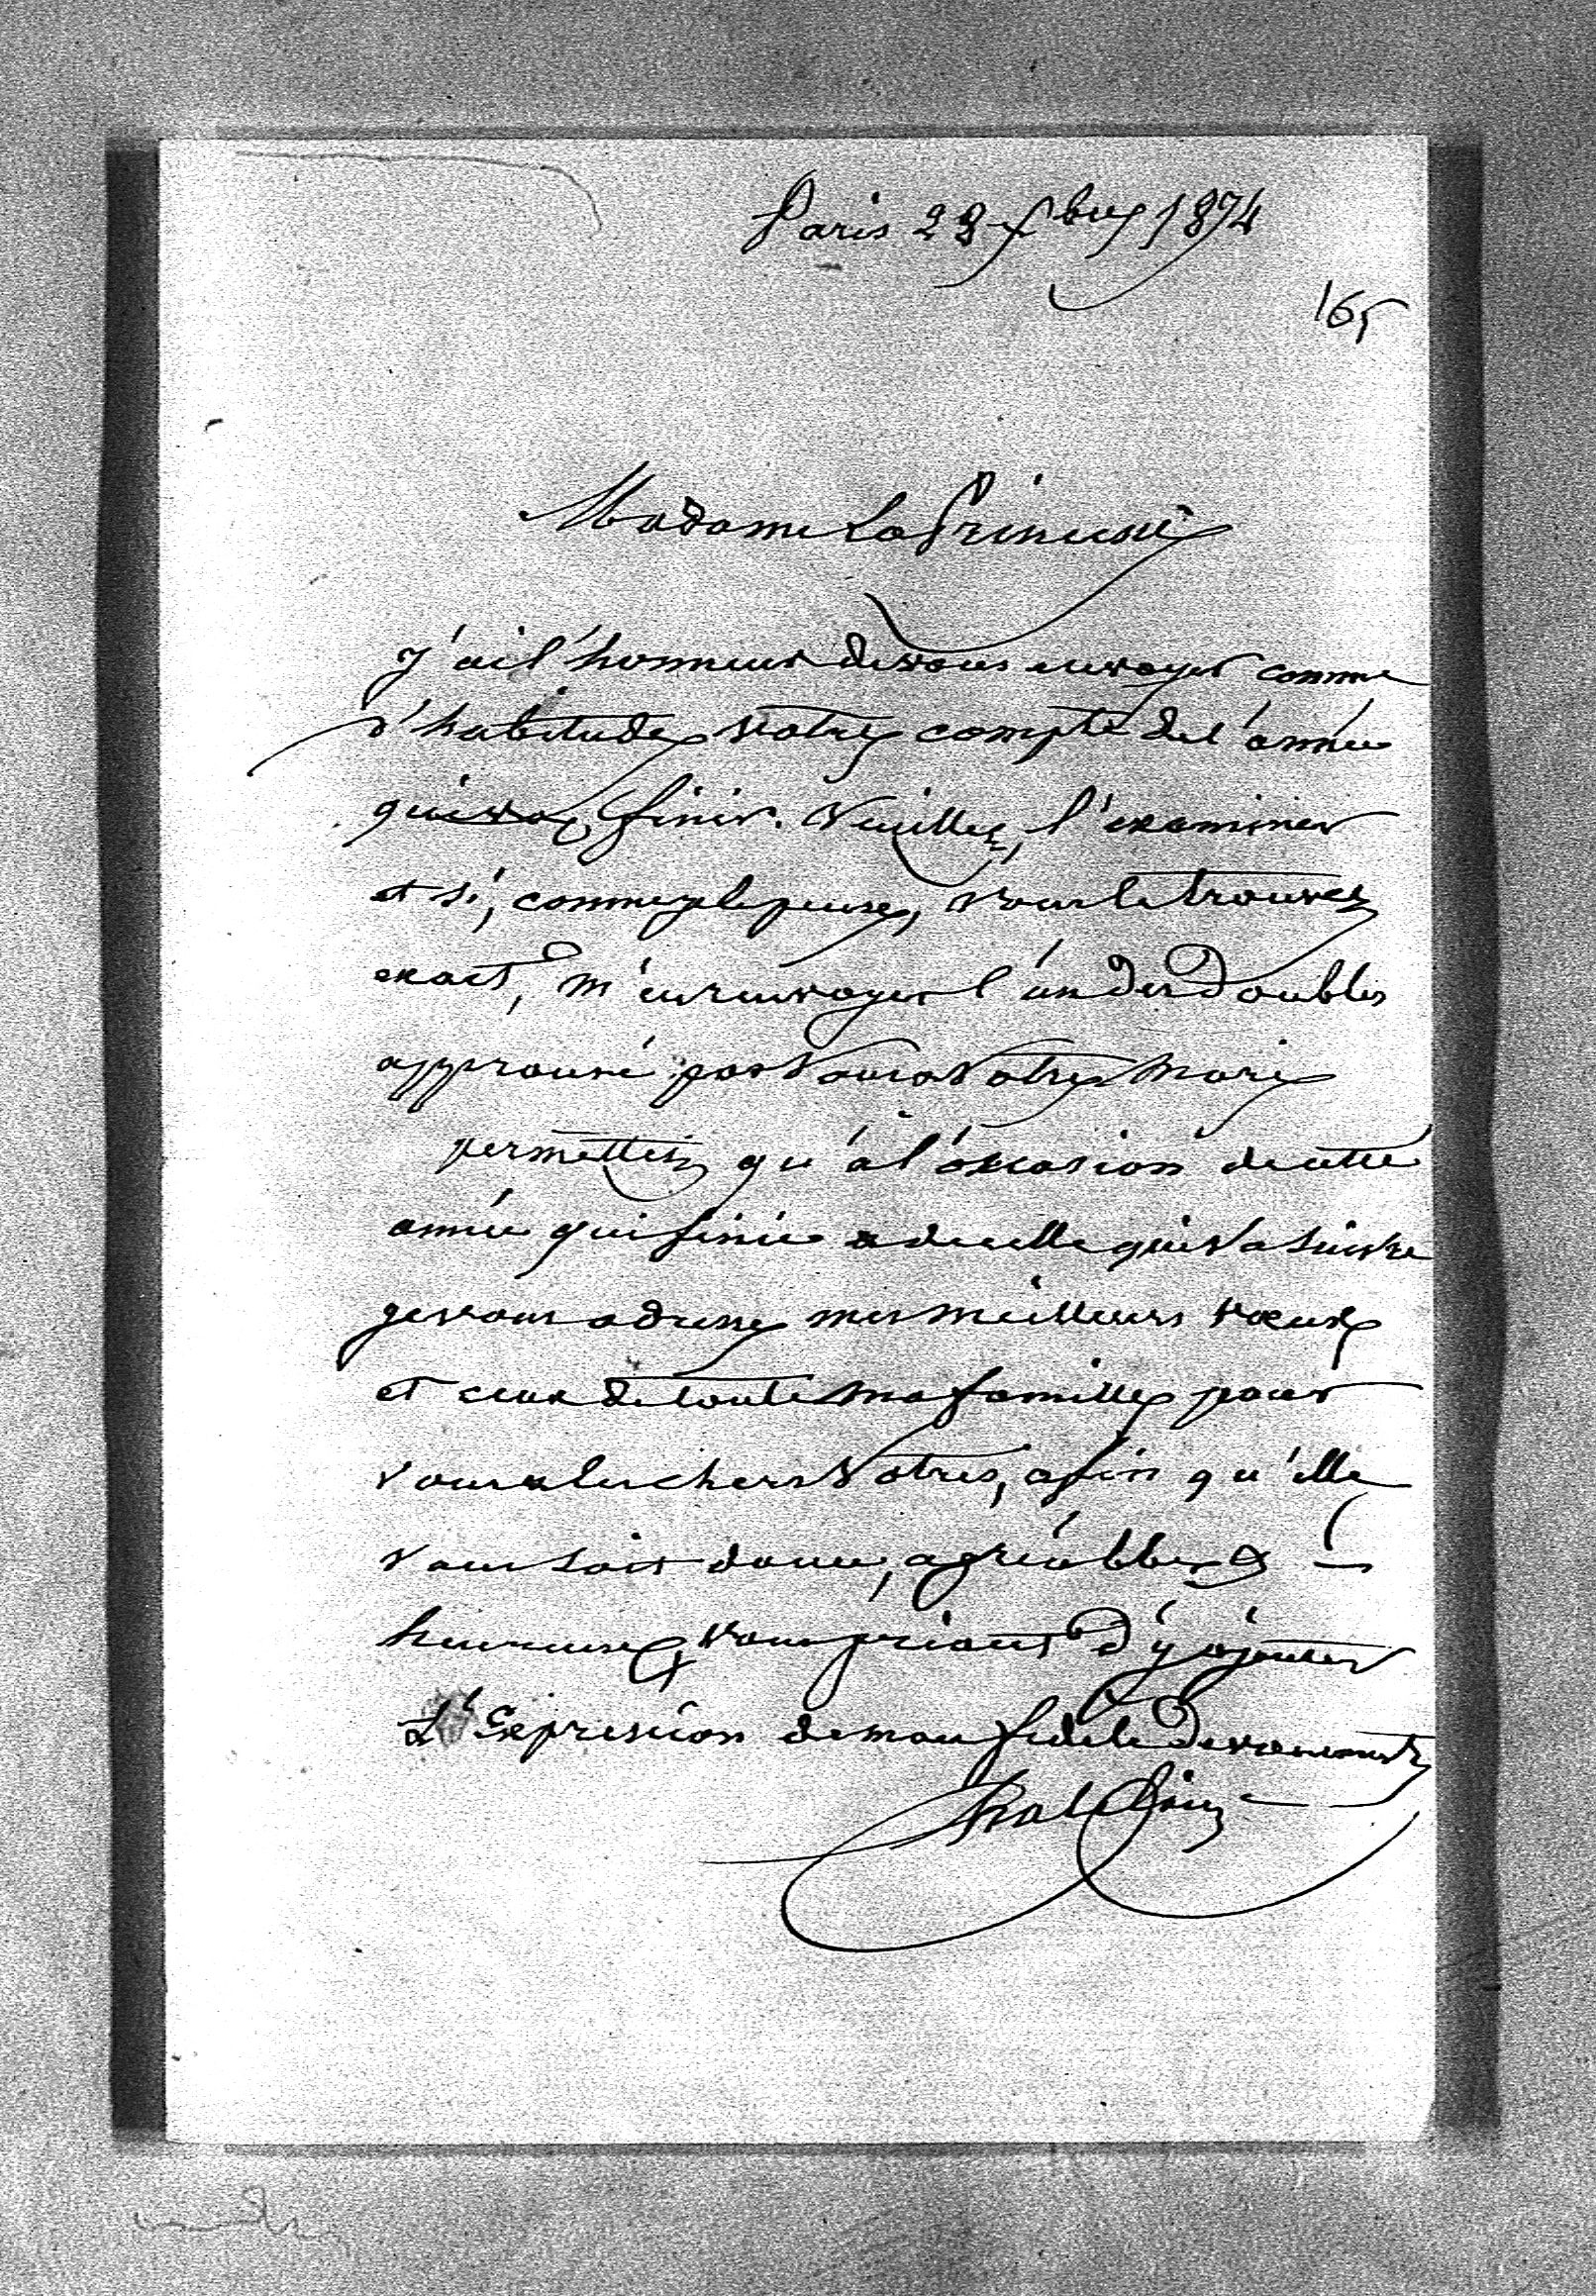 Paris 22 Xbre 1874
165
Madame La Princesse
J'ai l'honneur de vous envoyer comme
d'habitude votre compte de l'année
qui va finir. Veuillez l'examiner
et si, comme je le pense, vous le trouvez
exact, m'en renvoyer l'un des doubles
approuvé par vous & votre mari
permettez qu'à l'occasion de cette
année qui finie & de celle qui va suivre
je vous adresse mes meilleurs vœux
et ceux de toute ma famille pour
vous & les chers Vôtres, afin qu'elle
vous soit douce, agréable &
heureuse, vous priant d'y ajouter
L'Expression de mon fidèle Devouement